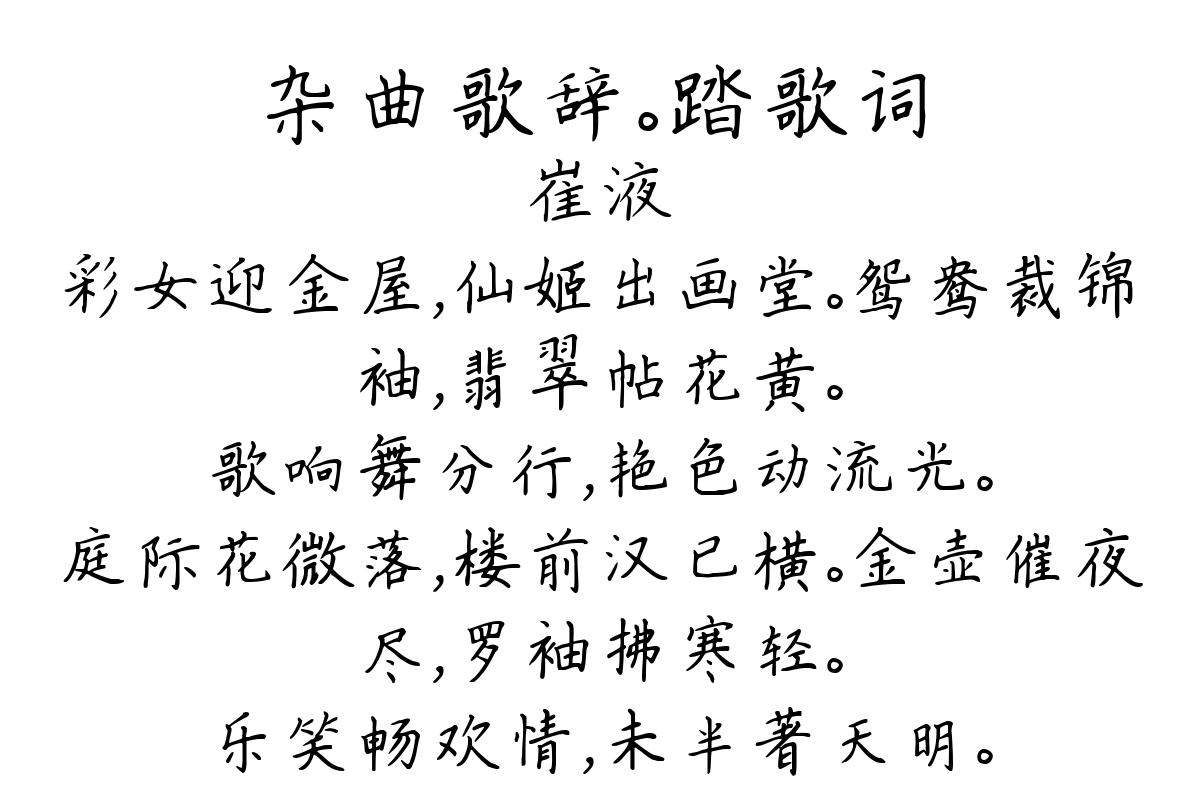 杂曲歌辞。踏歌词
崔液
彩女迎金屋,仙姬出画堂。鸳鸯裁锦
袖,翡翠帖花黄。
歌响舞分行,艳色动流光。
庭际花微落,楼前汉已横。金壶催夜
尽,罗袖拂寒轻。
乐笑畅欢情,未半著天明。